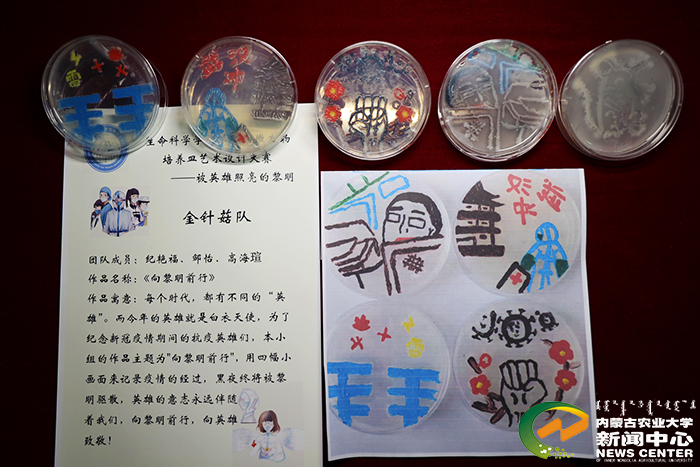 生命科学学
物
培养皿艺术设计大赛
——被英雄照亮的黎明
金针菇队
团队成员：纪艳福、邹怡、高海瑄
作品名称：《向黎明前行》
作品寓意：每个时代，都有不同的“英
雄”。而今年的英雄就是白衣天使，为了
纪念新冠疫情期间的抗疫英雄们，本小
组的作品主题为“向黎明前行”，用四幅小
画面来记录疫情的经过，黑夜终将被黎
明驱散，英雄的意志永远伴随
着我们，向黎明前行，向英雄
致敬！
内蒙古农业大学
新闻中心
OF INNER MONGOLIA AGRICULTURAL UNIVERSITY
NEWS CENTER